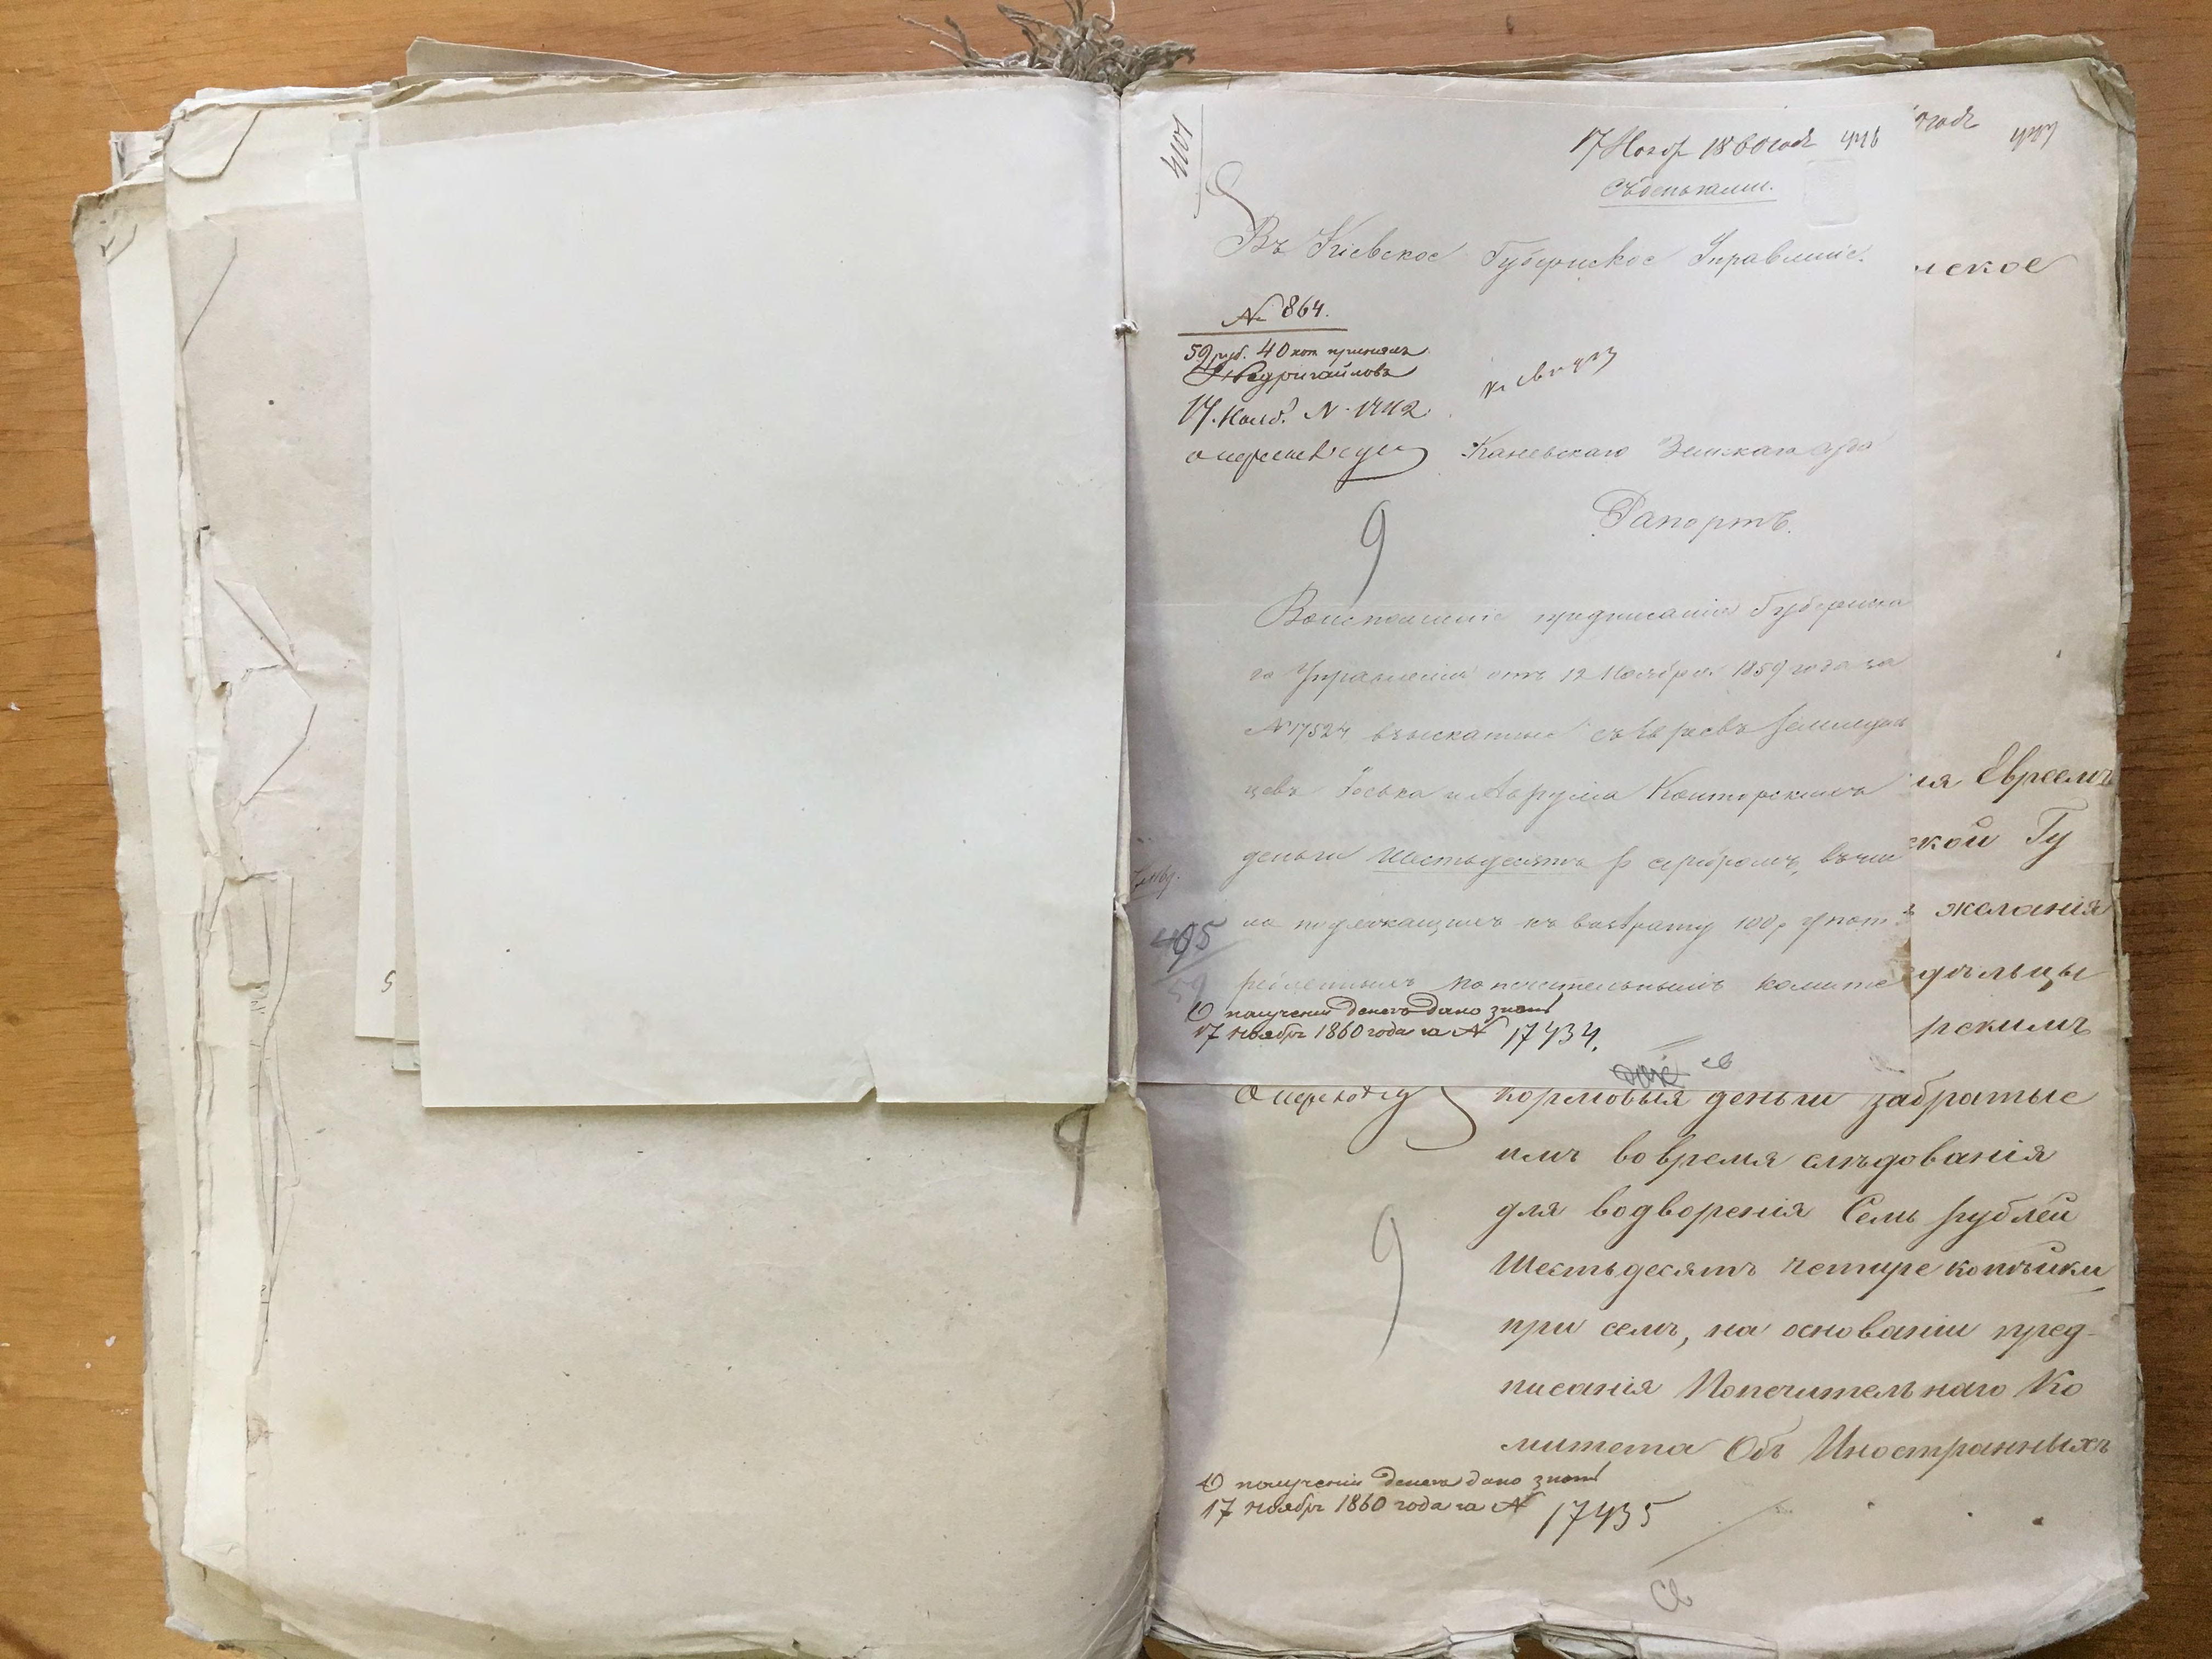 4101
17 Нояб 1860 года 446
Съ деньгами.
Въ Кіевское Губернское Управленіе.
№ 864.
59 руб. 40 коп принялъ
17. Нояб. № 1742
Каневскаго Земскаго Суда
Рапортъ.
9
Воисполненіе предписанія Губернска
го Управленія отъ 12 Ноября 1859 года за
№ 17524 взысканные съ Евреевъ Земледѣль
цевъ Іоська и Аврума Конторскихъ
деньги Шестьдесятъ р серебромъ, въчи
ло подлежащихъ къ возврату 100 р упото
ребленныхъ попечительнымъ комите
495
59
О полученіи денегъ дано знать
17 ноября 1860 года за № 17434.
года
ское
ія Евреемъ
ской Гу
желанія
дѣльцы
рскимъ
кормовыя деньги забратые
имъ вовремя слѣдованія
для водворенія Семь рублей
Шестьдесятъ четыре копѣйки
при семъ, на основаніи пред-
писанія Попечительнаго Ко
митета Объ Иностранныхъ
9
О полученіи денегъ дано знать
17 ноября 1860 года за № 17435
5